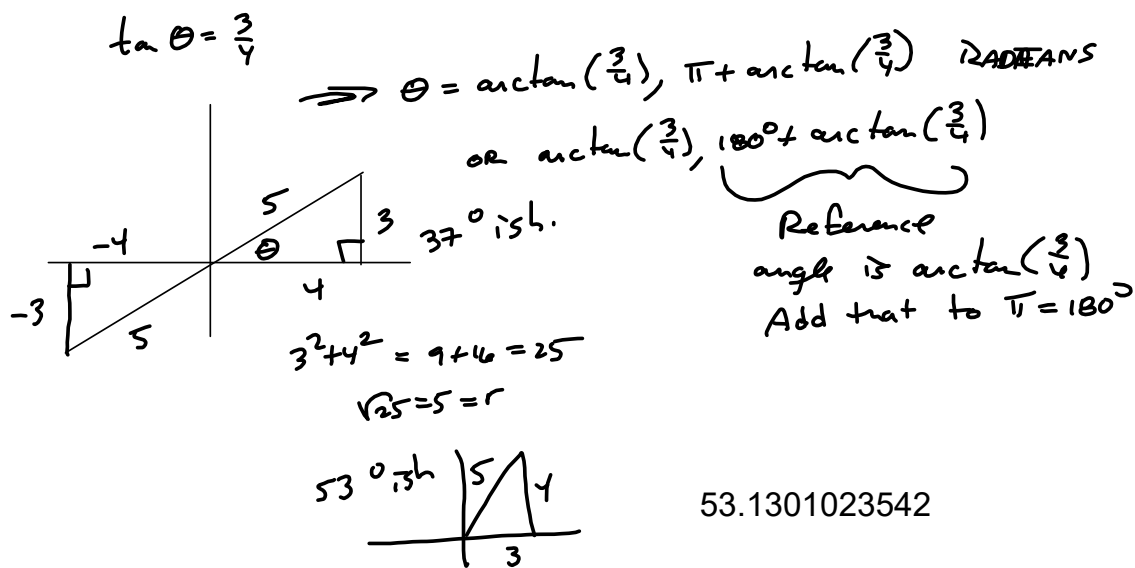 tan θ = 3/4
⟹ θ = arctan(3/4), π + arctan(3/4) RADIANS
OR arctan(3/4), 180° + arctan(3/4)
Reference
angle is arctan(3/4)
Add that to π = 180°
5
3
37° ish.
-4
θ
4
-3
5
3²+4² = 9+16 = 25
√25 = 5 = r
53° ish
5
4
3
53.1301023542